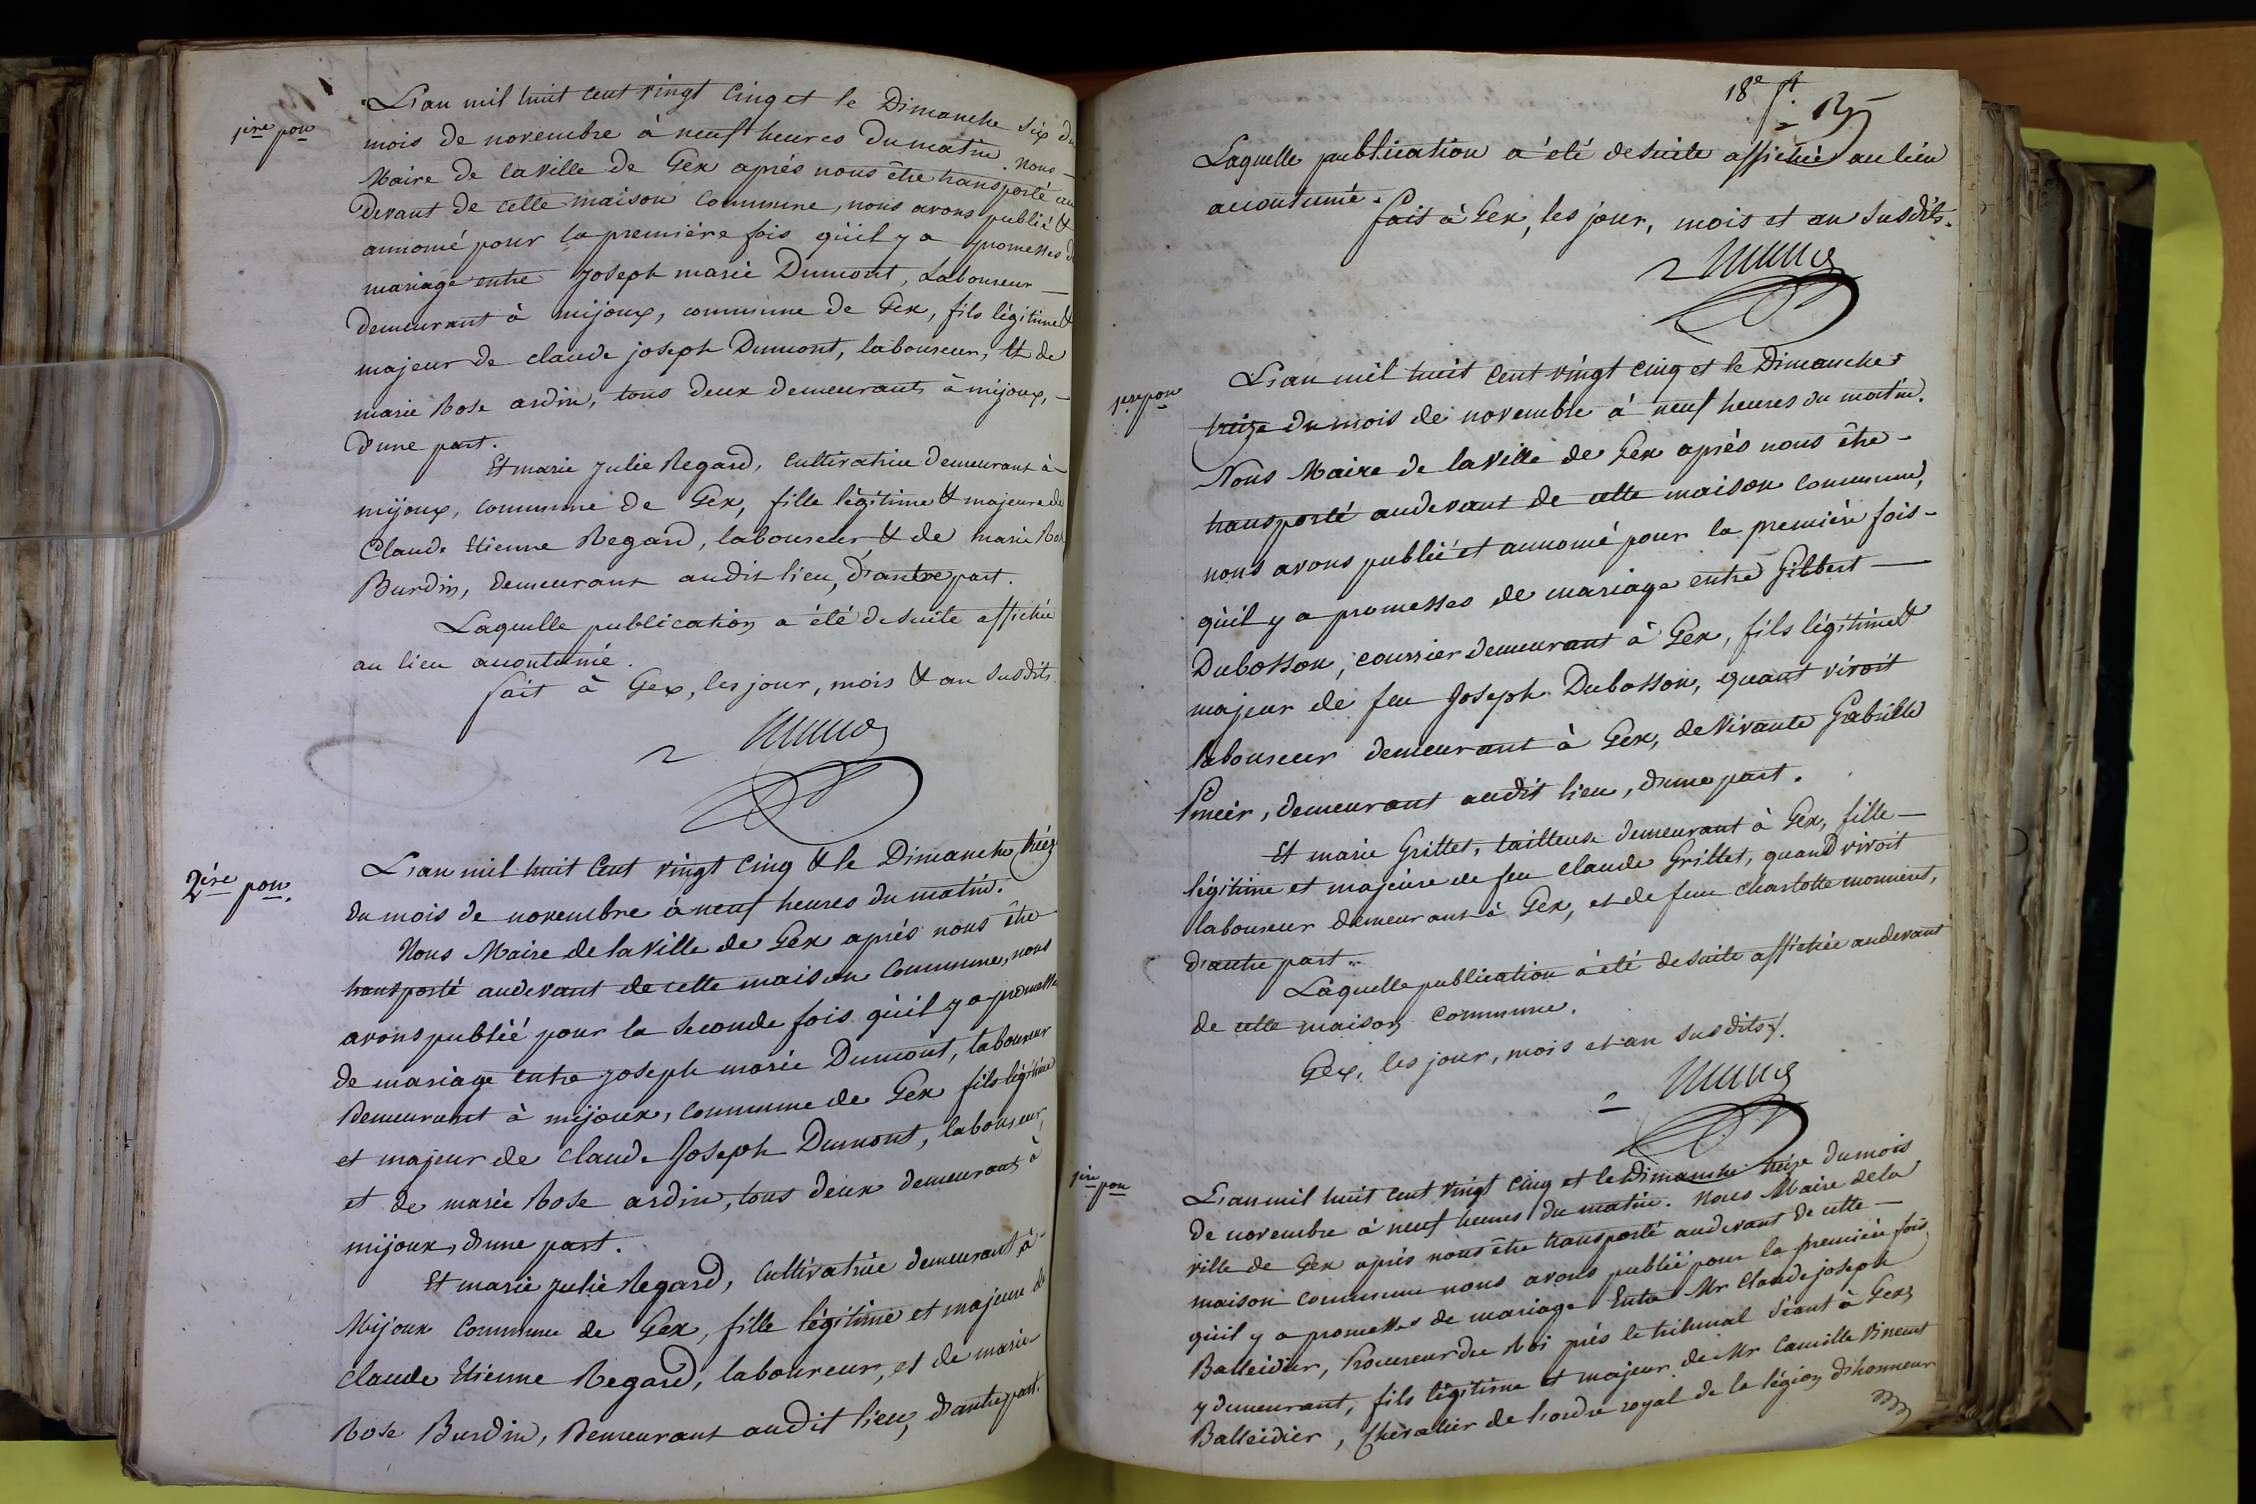 1ère pon
L'an mil huit cent vingt cinq et le Dimanche six du
mois de novembre à neuf heures du matin. Nous
Maire de la ville de Gex après nous être transporté au
devant de cette maison commune, nous avons publié &
annoncé pour la première fois qu'il y a promesses de
mariage entre joseph marie Dumont, Laboureur
demeurant à mijoux, commune de Gex, fils légitime &
majeur de claude joseph Dumont, laboureur, & de
marie Rose ardin, tous deux demeurants à mijoux,
d'une part.
Et marie julie Regard, cultivatrice demeurant à
mijoux, commune de Gex, fille légitime & majeure de
Claude Etienne Regard, laboureur & de marie Rose
Burdin, demeurant audit lieu, d'autre part.
Laquelle publication a été de suite affichée
au lieu accoutumé.
fait à Gex, les jour, mois & an susdits.
2ière pon.
L'an mil huit cent vingt cinq & le Dimanche treize
du mois de novembre à neuf heures du matin.
Nous Maire de la Ville de Gex après nous être
transporté audevant de cette maison commune, nous
avons publié pour la seconde fois qu'il y a promesses
de mariage entre joseph marie Dumont, laboureur
demeurant à mijoux, commune de Gex fils légitime
et majeur de claude Joseph Dumont, laboureur,
et de marie Rose ardin, tous deux demeurant à
mijoux, d'une part.
Et marie julie Regard, cultivatrice demeurant à
Mijoux Commune de Gex, fille légitime et majeure de
claude Etienne Regard, laboureur, et de marie
Rose Burdin, demeurant audit lieu, d'autre part.
18e ft.
Laquelle publication a été de suite affichée au lieu
accoutumé.
fait à Gex, les jour, mois et an susdits.
1ère pon
L'an mil huit cent vingt cinq et le Dimanche
treize du mois de novembre à neuf heures du matin.
Nous Maire de la ville de Gex après nous être
transporté audevant de cette maison commune,
nous avons publié et annoncé pour la première fois
qu'il y a promesses de mariage entre Gilbert
Dubosson, coursier demeurant à Gex, fils légitime &
majeur de feu Joseph Dubosson, quant vivoit
laboureur demeurant à Gex, de vivante Gabrielle
demeurant audit lieu, d'une part.
Et marie Grillet, tailleuse demeurant à Gex, fille
légitime et majeure de feu claude Grillet, quand vivoit
laboureur demeurant à Gex, et de feue charlotte monnieret,
d'autre part.
Laquelle publication a été de suite affichée audevant
de cette maison commune.
Gex, les jour, mois et an susdits.
1ère pon
L'an mil huit cent vingt cinq et le Dimanche treize du mois
de novembre à neuf heures du matin. Nous Maire de la
ville de Gex après nous être transporté audevant de cette
maison commune nous avons publié pour la première fois
qu'il y a promesses de mariage Entre Mr Claude joseph
Balleidier, Procureur du Roi près le tribunal séant à Gex,
y demeurant, fils légitime et majeur de Mr Camille Vincent
Balleidier, Chevalier de l'ordre royal de la légion d'honneur